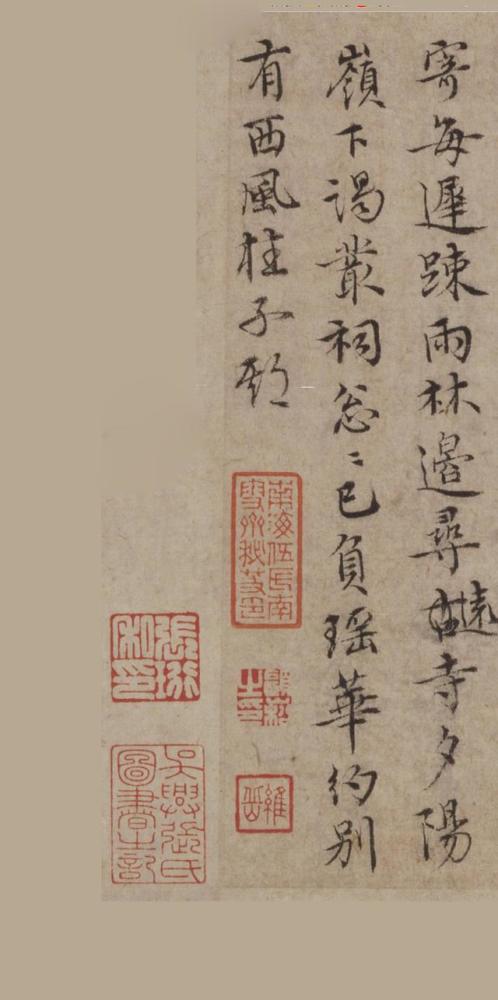 寄每遲踈雨林邊尋遠寺夕陽
嶺下謁叢祠忩〻已負瑶華約別
有西風桂子期
南海伍氏南
雪齋秘笈印
張珩
私印
維
岳
吳興張氏
圖書之記